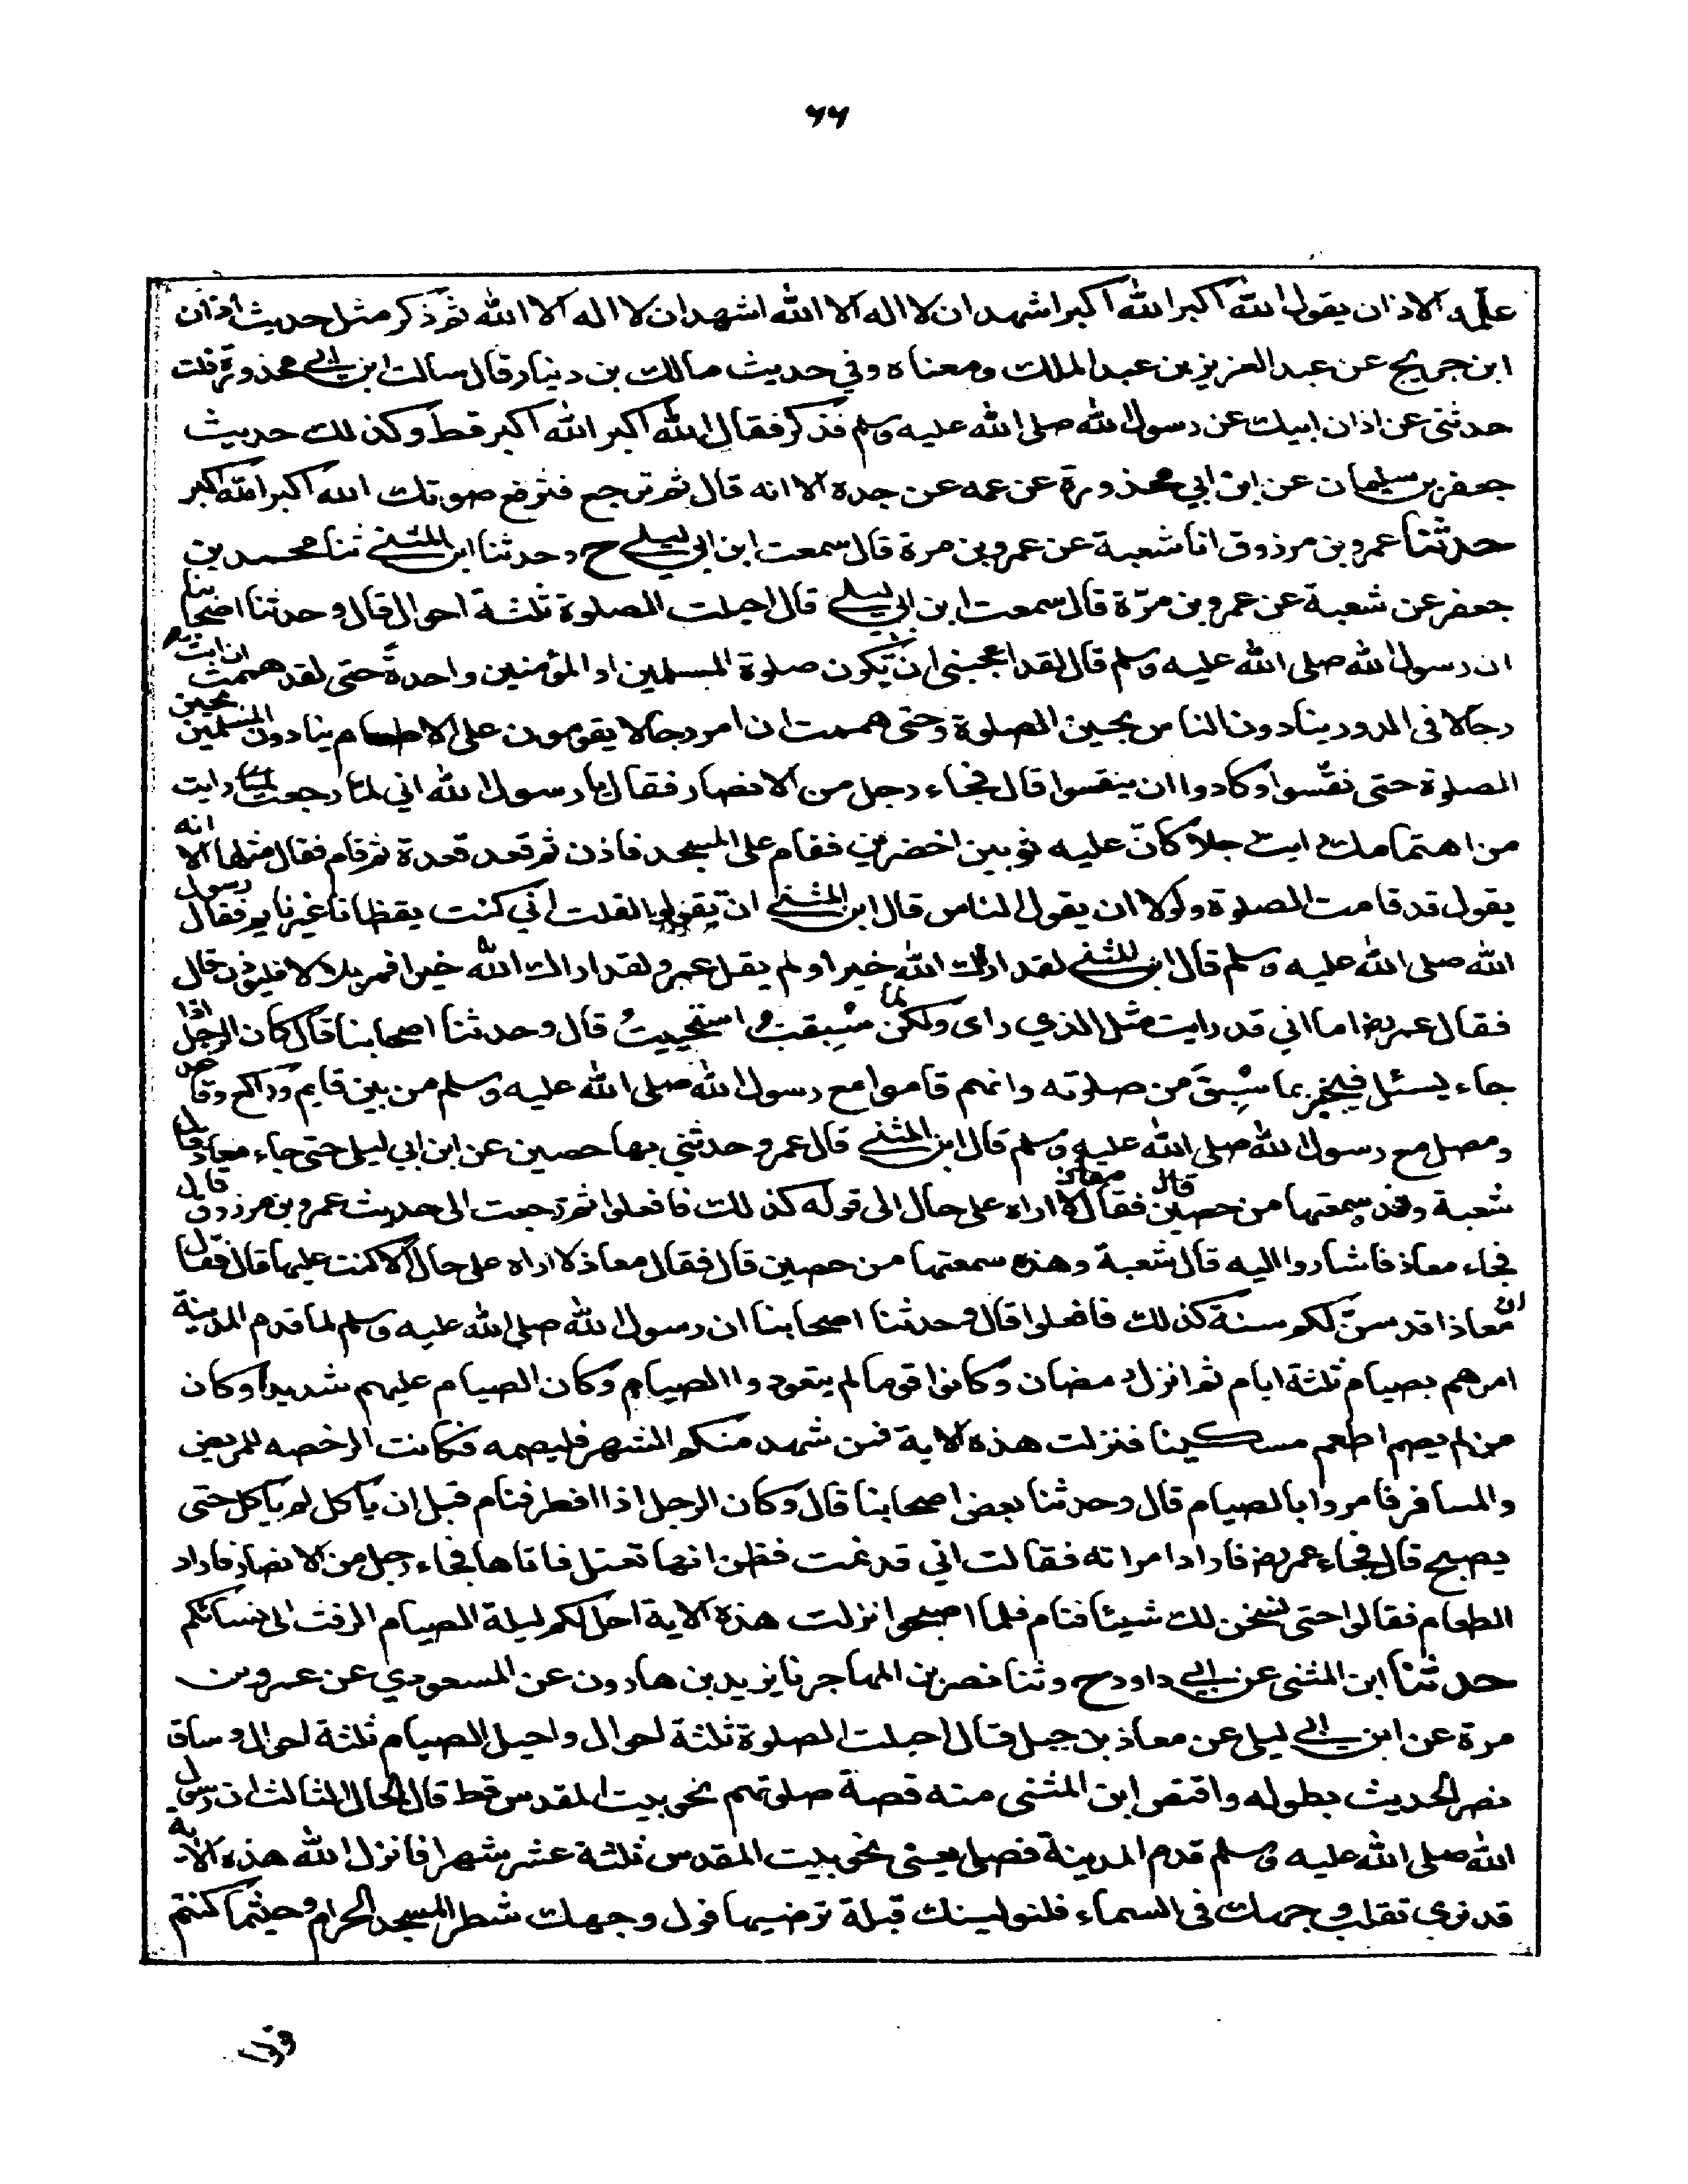 ٦٦
علّمه الاذان يقول الله اكبر الله اكبر اشهد ان لا اله الا الله اشهد ان لا اله الا الله ثم ذكر مثل حديث اذان
ابن جريج عن عبد العزيز بن عبد الملك ومعناه وفي حديث مالك بن دينار قال سالت ابن ابي محذورة قلت
حدثني عن اذان ابيك عن رسول الله صلى الله عليه وسلم فذكر فقال الله اكبر الله اكبر قط وكذلك حديث
جعفر بن سليمان عن ابن ابي محذورة عن عمه عن جده الا انه قال ثم ترجع فترفع صوتك الله اكبر الله اكبر
حدثنا عمرو بن مرزوق انا شعبة عن عمرو بن مرة قال سمعت ابن ابي ليلى ح وحدثنا ابن المثنى ثنا محمد بن
جعفر عن شعبة عن عمرو بن مرّة قال سمعت ابن ابي ليلى قال احيلت الصلوة ثلثة احوال قال وحدثنا اصحابنا
ان رسول الله صلى الله عليه وسلم قال لقد اعجبني ان تكون صلوة المسلمين او المؤمنين واحدة حتى لقد هممت ان ابث
رجالا في الدور ينادون الناس بحين الصلوة وحتى هممت ان امر رجالا يقومون على الاطام ينادون المسلمين بحين
الصلوة حتى نقسوا وكادوا ان ينقسوا قال فجاء رجل من الانصار فقال يا رسول الله اني لما رجعت لما رايت
من اهتمامك رايت رجلا كانّ عليه ثوبين اخضرين فقام على المسجد فاذن ثم قعد قعدة ثم قام فقال مثلها الا انه
يقول قد قامت الصلوة ولولا ان يقول الناس قال ابن المثنى ان تقولوا لقلت اني كنت يقظانا غير نايم فقال رسول
الله صلى الله عليه وسلم قال ابن المثنى لقد اراك الله خيرا ولم يقل عمرو لقد اراك الله خيرا فمر بلالا فليؤذن قال
فقال عمر رض اما اني قد رايت مثل الذي راى ولكن لما سُبِقتُ استحييتُ قال وحدثنا اصحابنا قال كان الرجل اذا
جاء يسئل فيخبر بما سُبِقَ من صلوته وانهم قاموا مع رسول الله صلى الله عليه وسلم من بين قايم وراكع وقاعد
ومصل مع رسول الله صلى الله عليه وسلم قال ابن المثنى قال عمرو حدثني بها حصين عن ابن ابي ليلى حتى جاء معاذ قال
شعبة وقد سمعتها من حصين قال فقال معاذ لا اراه على حال الى قوله كذلك فافعلوا ثم رجعت الى حديث عمرو بن مرزوق قال
فجاء معاذ فاشاروا اليه قال شعبة وهذه سمعتها من حصين قال فقال معاذ لا اراه على حال الا كنت عليها قال فقال
ان معاذا قد سنّ لكم سنة كذلك فافعلوا قال وحدثنا اصحابنا ان رسول الله صلى الله عليه وسلم لما قدم المدينة
امرهم بصيام ثلثة ايام ثم انزل رمضان وكانوا قوما لم يتعودوا الصيام وكان الصيام عليهم شديدا وكان
من لم يصم اطعم مسكينا فنزلت هذه الاية فمن شهد منكم الشهر فليصمه فكانت الرخصه للمريض
والمسافر فامروا بالصيام قال وحدثنا بعض اصحابنا قال وكان الرجل اذا افطر فنام قبل ان ياكل لم ياكل حتى
يصبح قال فجاء عمر رض فاراد امراته فقالت اني قد نمت فظن انها تعتل فاتاها فجاء رجل من الانصار فاراد
الطعام فقالوا حتى نسخن لك شيئا فنام فلما اصبحوا نزلت هذه الاية احل لكم ليلة الصيام الرفث الى نسائكم
حدثنا ابن المثنى عن ابي داود ح وثنا نصر بن المهاجر نا يزيد بن هارون عن المسعودي عن عمرو بن
مرة عن ابن ابي ليلى عن معاذ بن جبل قال احيلت الصلوة ثلثة احوال واحيل الصيام ثلثة احوال وساق
نصر الحديث بطوله واقتص ابن المثنى منه قصة صلوتهم نحو بيت المقدس قط قال الحال الثالث ان رسول
الله صلى الله عليه وسلم قدم المدينة فصلى يعني نحو بيت المقدس ثلثة عشر شهرا فانزل الله هذه الاية
قد نرى تقلب وجهك في السماء فلنولينك قبلة ترضيها فول وجهك شطر المسجد الحرام وحيثما كنتم